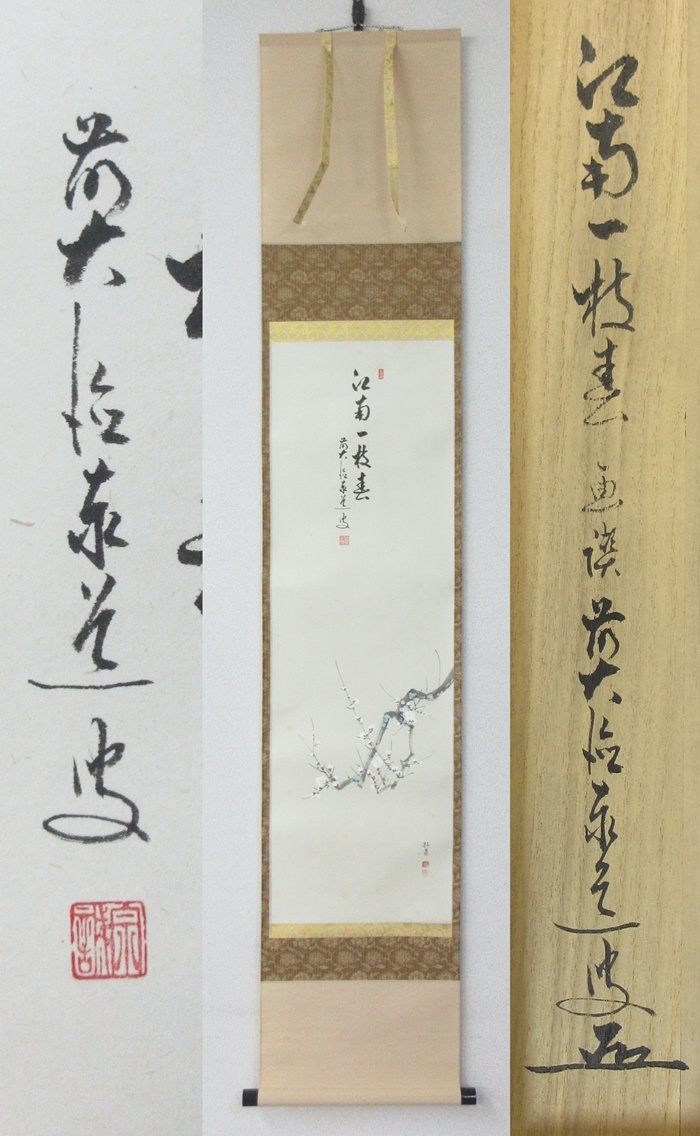 前大徳泰道叟
江南一枝春
前大徳泰道叟
江南一枝春 画讃 前大徳泰道叟